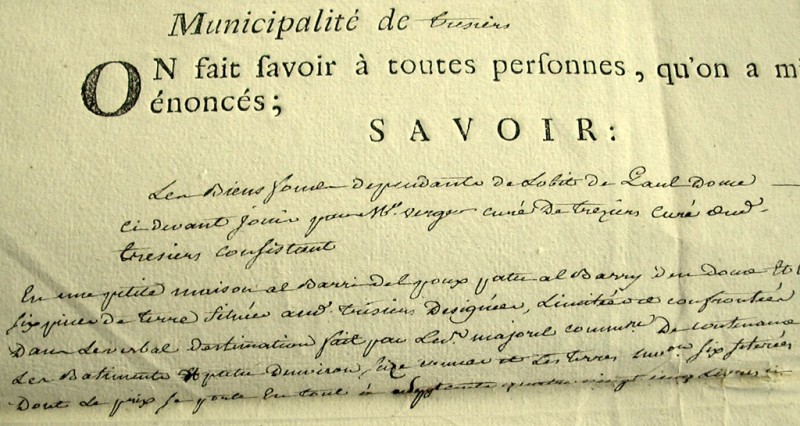 Municipalité de tresiers
ON fait savoir à toutes personnes, qu'on a m
énoncés;
SAVOIR:
Les Biens fonds dependants de Lobit de Paul Dome
ci devant joui par Mr. verger curé de treziers curé dud.
tresiers consistant
En une petite maison al Barri del poux patu al Barry den Dome et
six pieces de terre situées aud. tresiers Designées, Limitées et confrontées
Dans Le verbal destimation fait par Le Sr. majorel commre. De contenance
Les Batiments et patu Denviron et Les terres six seterées
Dont Le prix se porte en tout à quatre vingt cinq Livres